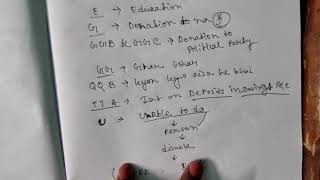 E → Education
G → Donation to na
GGB & GGC → Donation to
Political Party
GG → Ghar Ghar
QQB → kyon kyo aisa he bhai
TTA → Int on Deposits in savings A/c
U → Unable to do
↓
Person
↓
disable
↓
DD